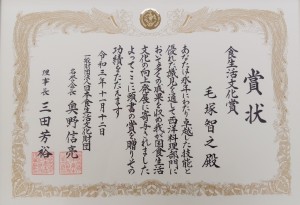 賞状
食生活文化賞
毛塚智之殿
あなたは永年にわたり卓越した技能と
優れた識見を通して西洋料理部門に
おいて多くの成果を収め我が国食生活
文化の向上発展に寄与されました
よってここに頭書の賞を贈りその
功績をたたえます
令和三年十一月十二日
一般財団法人日本食生活文化財団
名誉会長 奥野信亮
理事長 三田芳裕